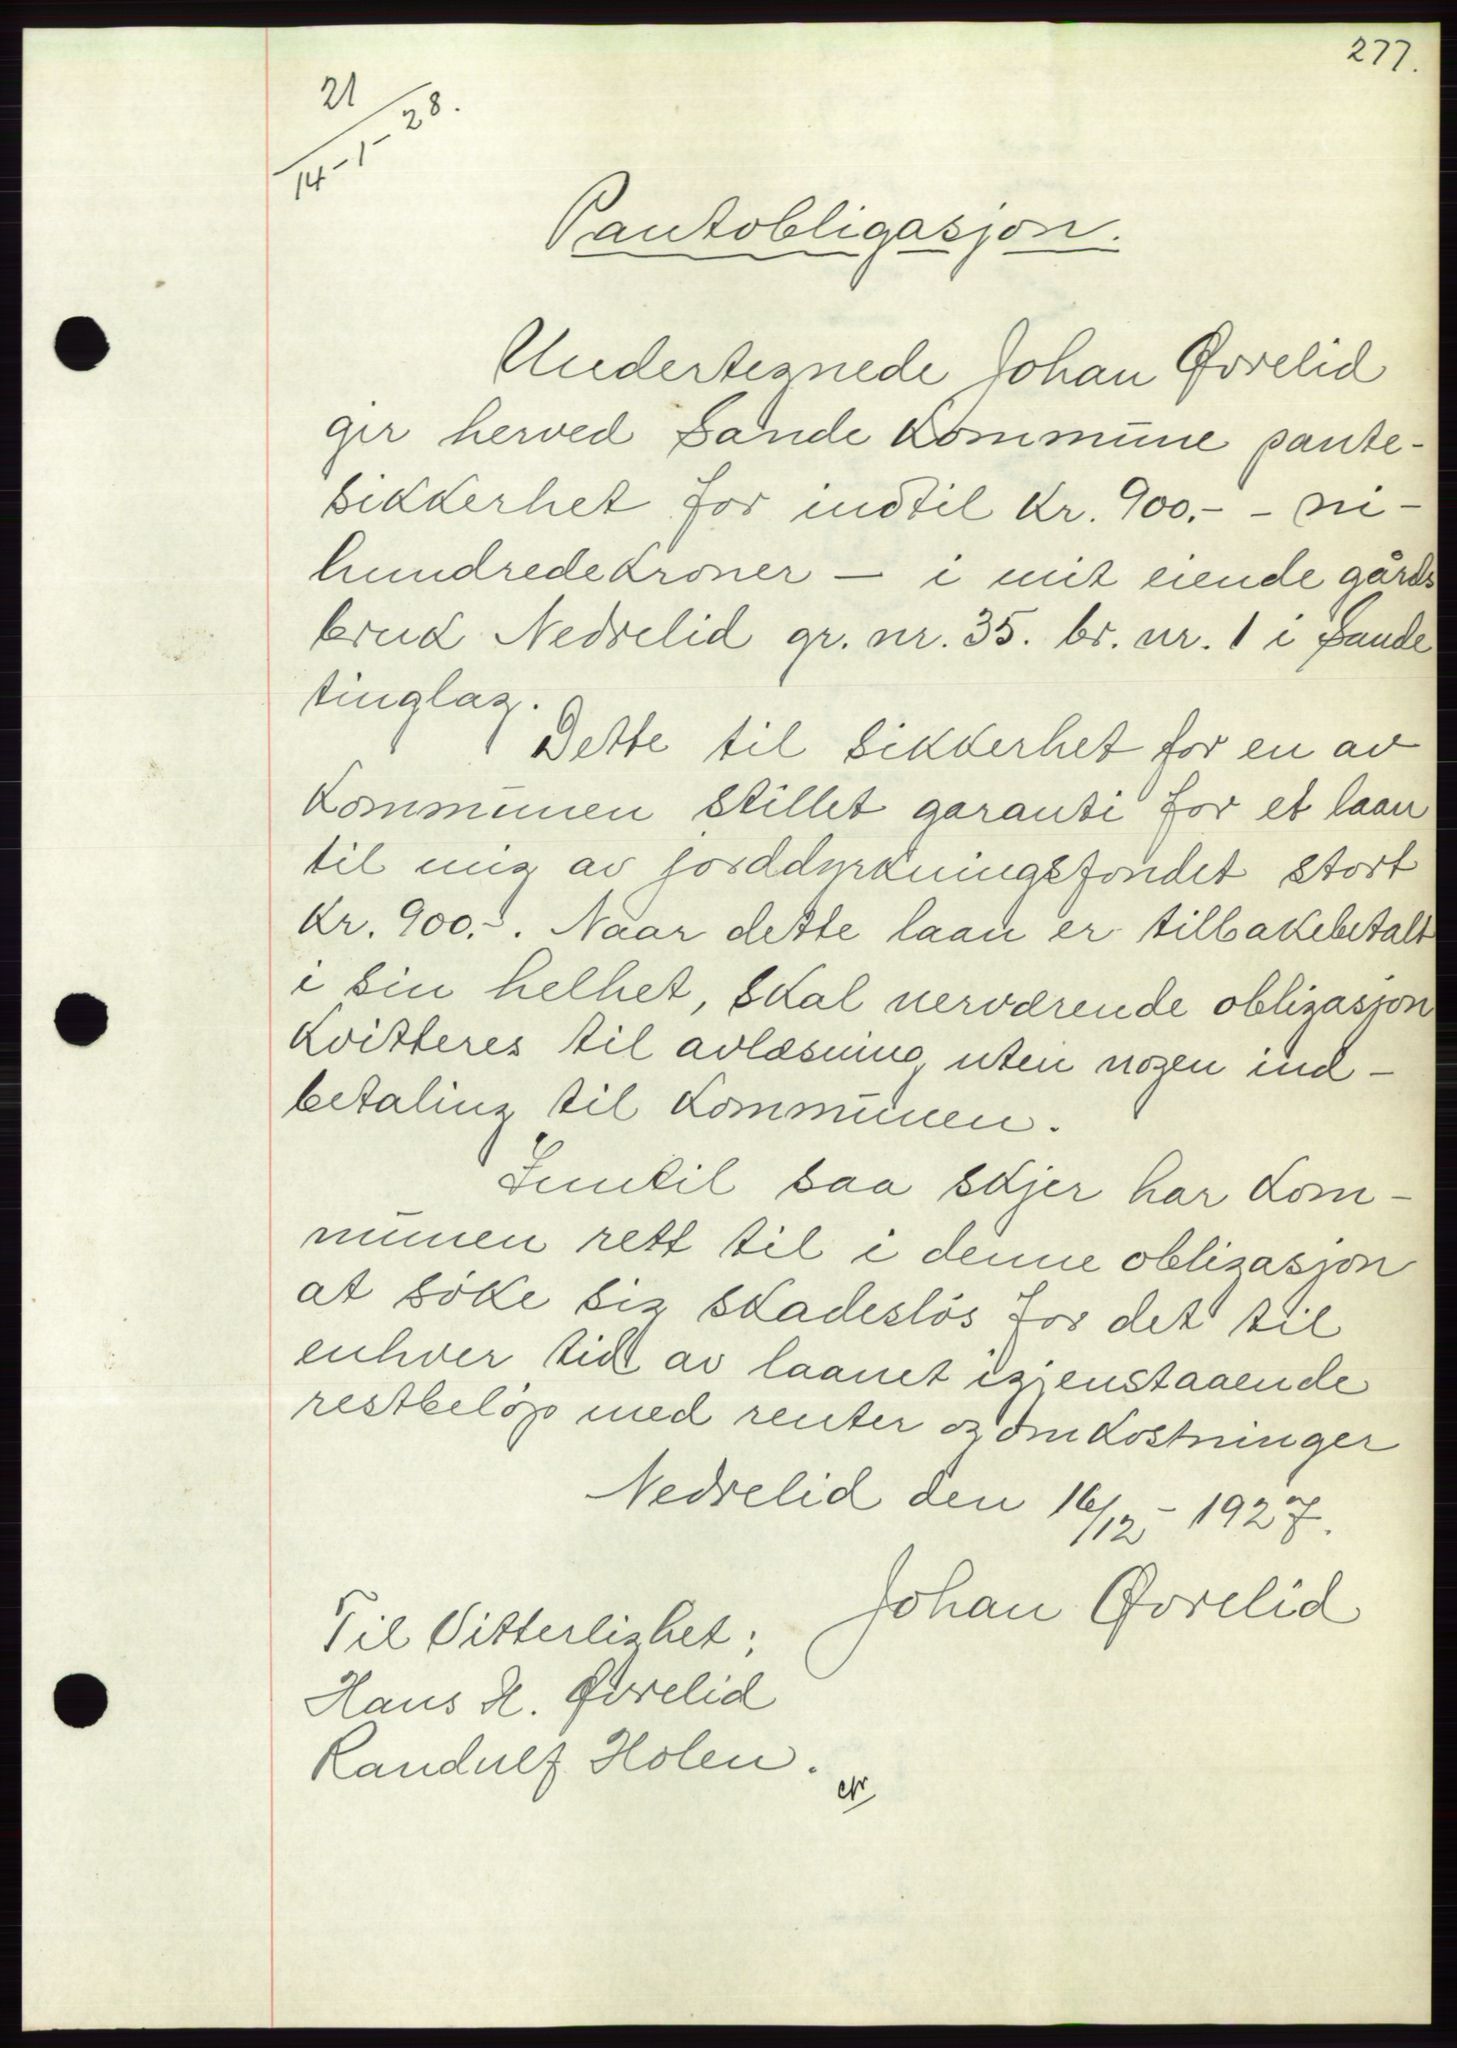 277.
21
14-1-28.
Pantobligasjon.
Undertegnede Johan Øvrelid
gir herved Sande kommune pante-
sikkerhet for indtil kr. 900.- - ni-
hundredekroner - i mit eiende gårds
bruk Nedrelid gr. nr. 35. br. nr. 1 i Sande
tinglag.
Dette til sikkerhet for en av
kommunen stillet garanti for et laan
til mig av jorddyrkningsfondet stort
kr. 900.-. Naar dette laan er tilbakebetalt
i sin helhet, skal nerværende obligasjon
kvitteres til avlæsning, uten nogen ind-
betaling til kommunen.
Inntil saa skjer har kom-
munen rett til i denne obligasjon
at söke sig skadeslös for det til
enhver tid av laanet igjenstaaende
restbelöp med renter og omkostninger
Nedrelid den 16/12 - 1927.
Johan Øvrelid
Til Vitterlighet:
Hans H. Øvrelid
Randulf Holen.